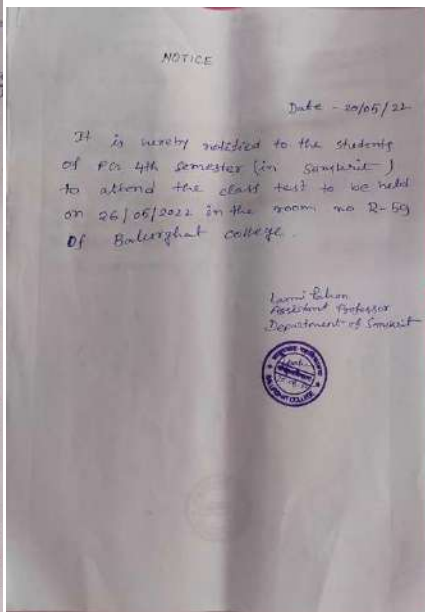 NOTICE
Date - 20/05/22
It is hereby notified to the students
of PG 4th semester (in Sanskrit)
to attend the class test to be held
on 26/05/2022 in the room no R-59
Of Balurghat college.
Laxmi Pahan
Assistant Professor
Department of Sanskrit
BALURGHAT COLLEGE